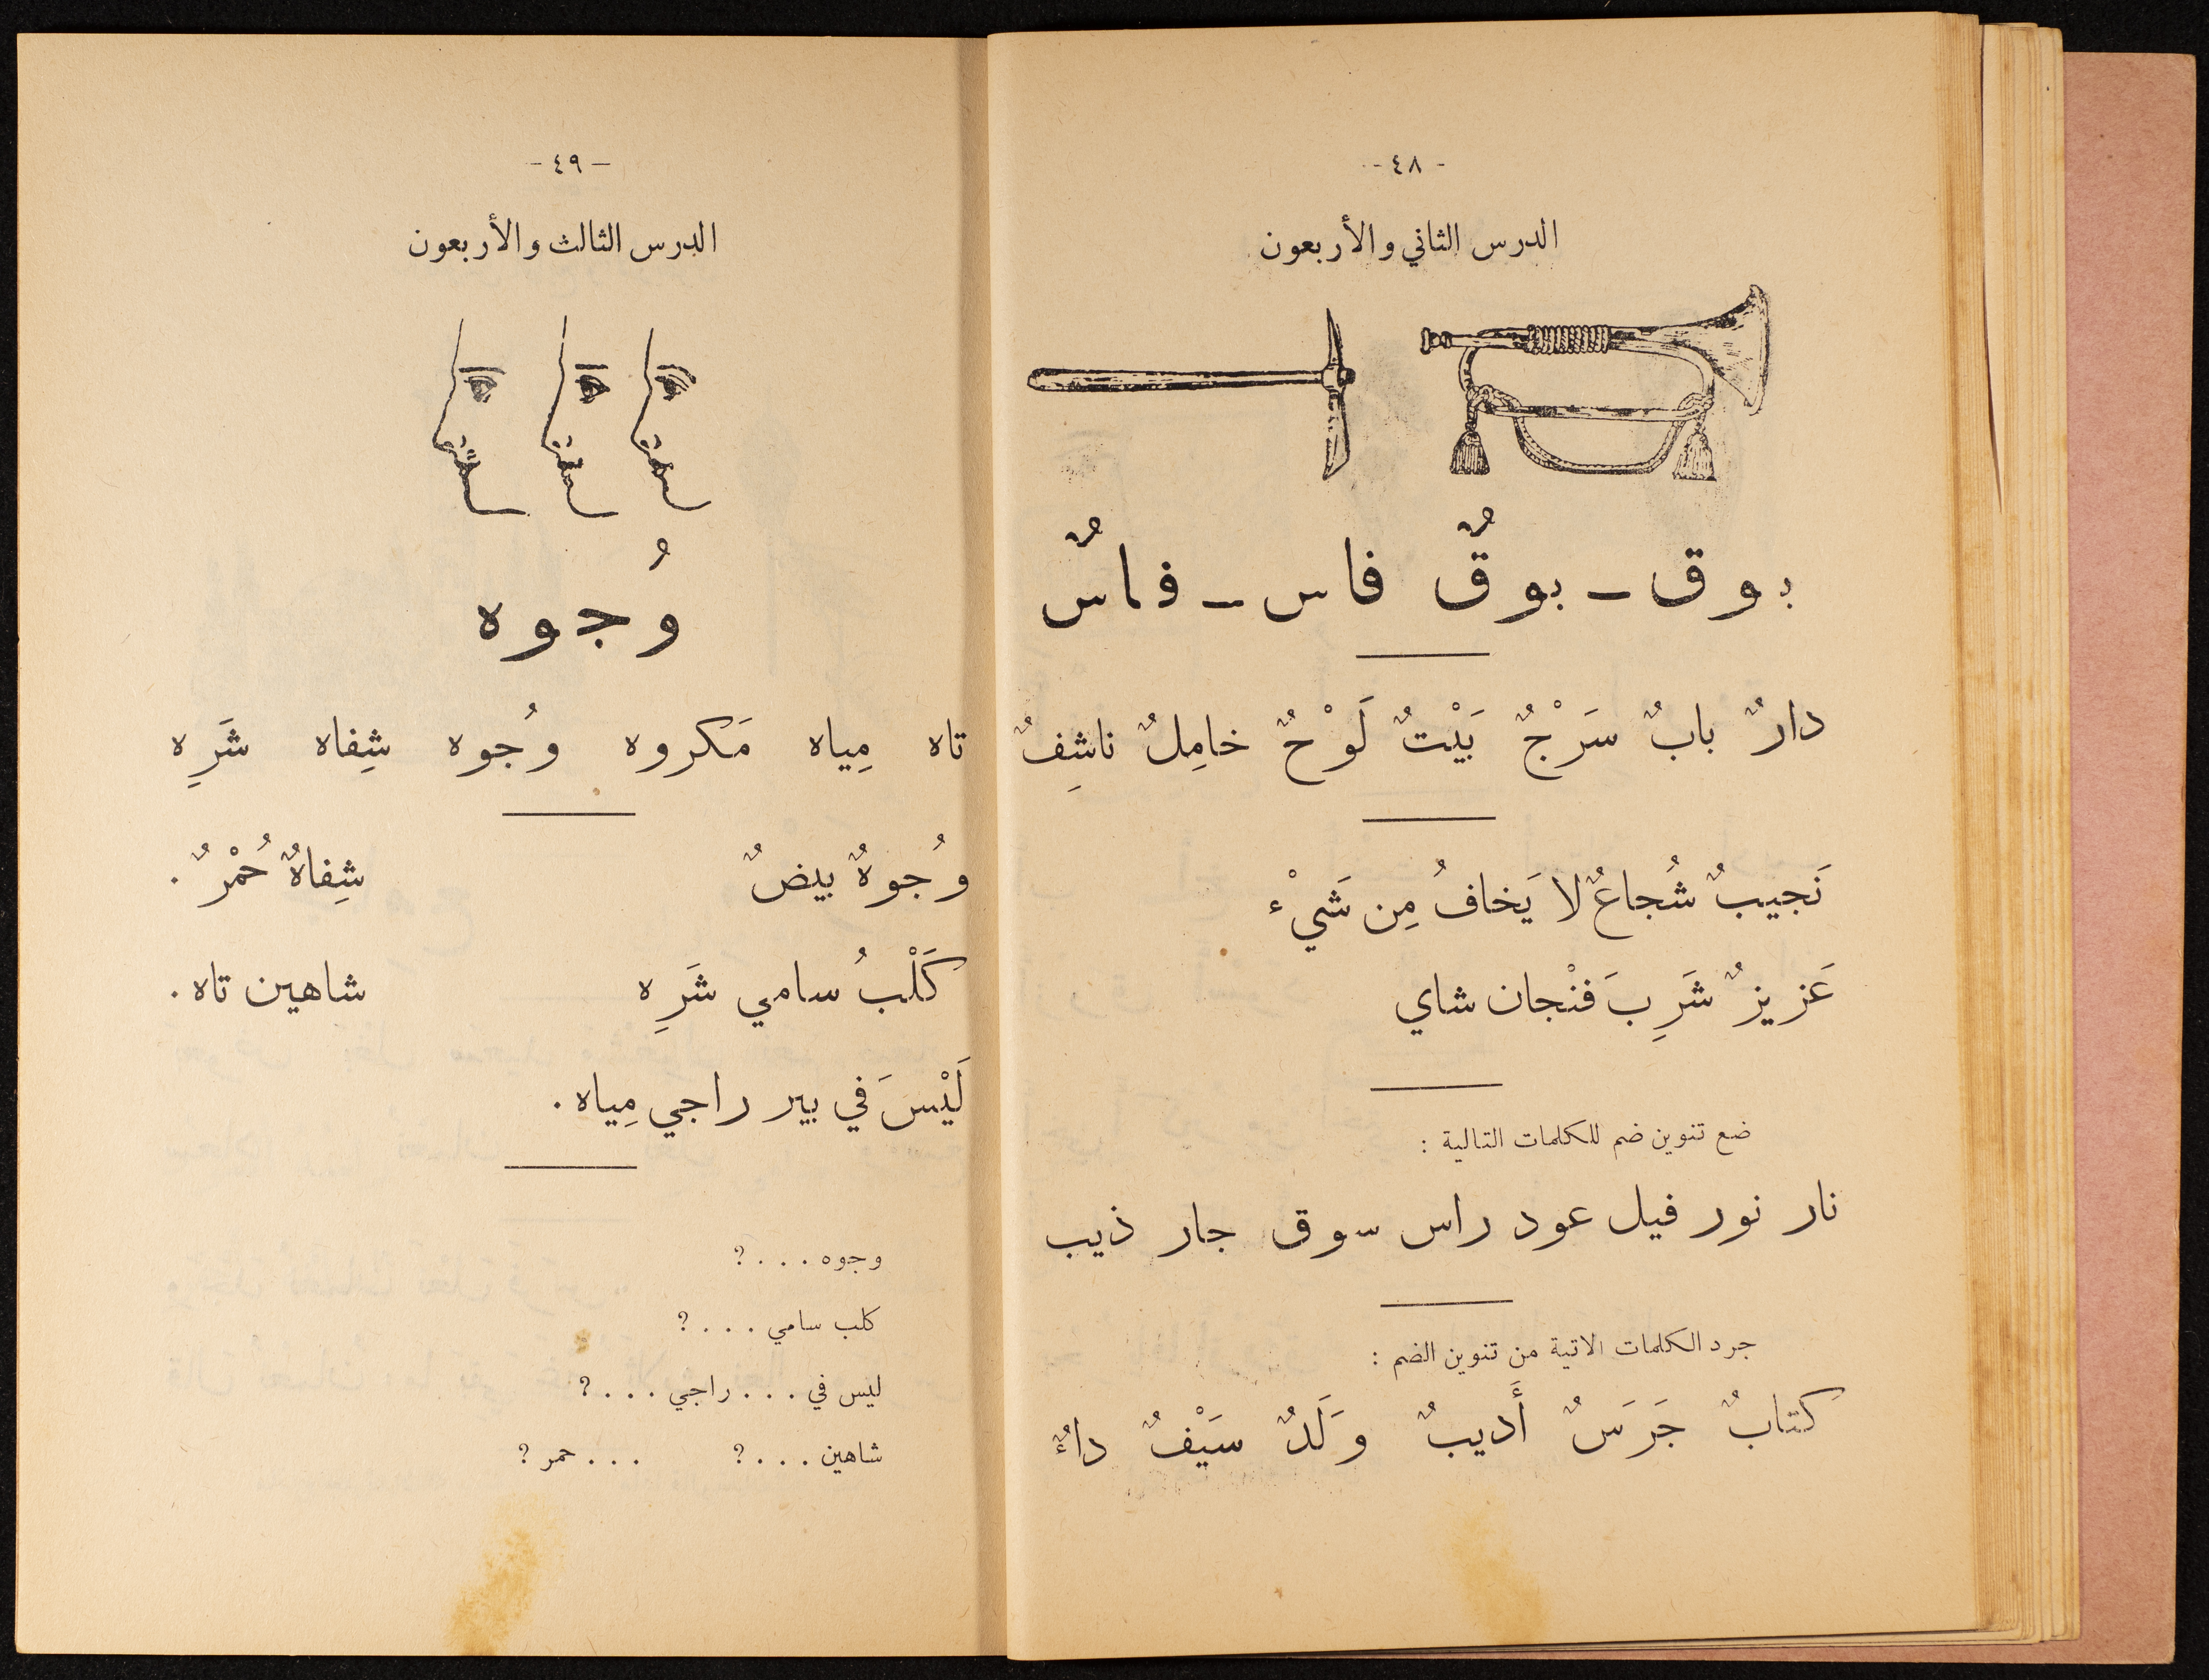 - ٤٨ -
الدرس الثاني والأربعون
بوق ـ بوقٌ فاس ـ فاسٌ
دارٌ بابٌ سَرْجٌ بَيْتٌ لَوْحٌ خامِلٌ ناشِفٌ
نَجيبٌ شُجاعٌ لا يَخافُ مِن شَيْء
عَزيزٌ شَرِبَ فنْجان شاي
ضع تنوين ضم للكلمات التالية :
نار نور فيل عود راس سوق جار ذيب
جرد الكلمات الاتية من تنوين الضم :
كتابٌ جَرَسٌ أَديبٌ وَلَدٌ سَيْفٌ داءٌ
- ٤٩ -
الدرس الثالث والأربعون
وُجوه
تاه مِياه مَكروه وُجوه شِفاه شَرِه
وُجوهٌ بيضٌ شِفاهٌ حُمْرٌ .
كَلْبُ سامي شَرِه شاهين تاه .
لَيْسَ في بير راجي مِياه .
وجوه . . . ؟
كلب سامي . . . ؟
ليس في . . . راجي . . . ؟
شاهين . . . ؟ . . . حمر ؟